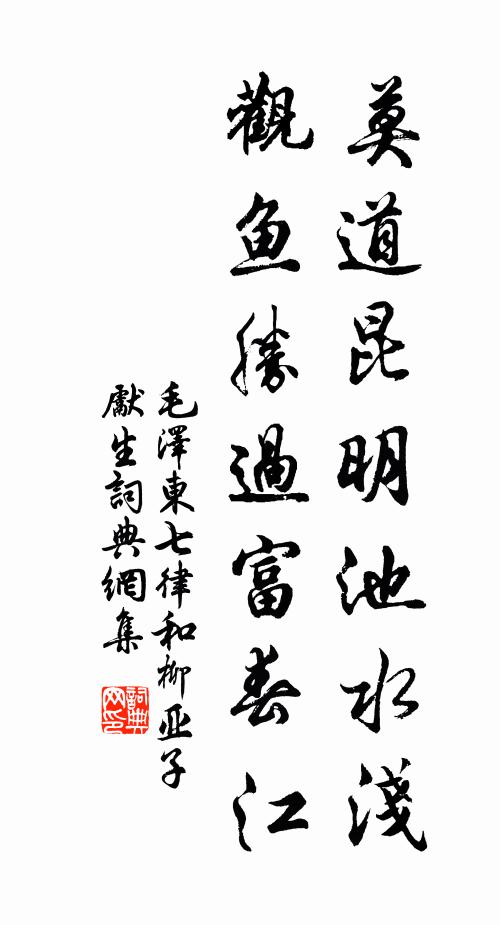 莫道昆明池水淺
觀鱼勝過富春江
毛澤東七律和柳亚子
獻生詞典網集
詞典
网印